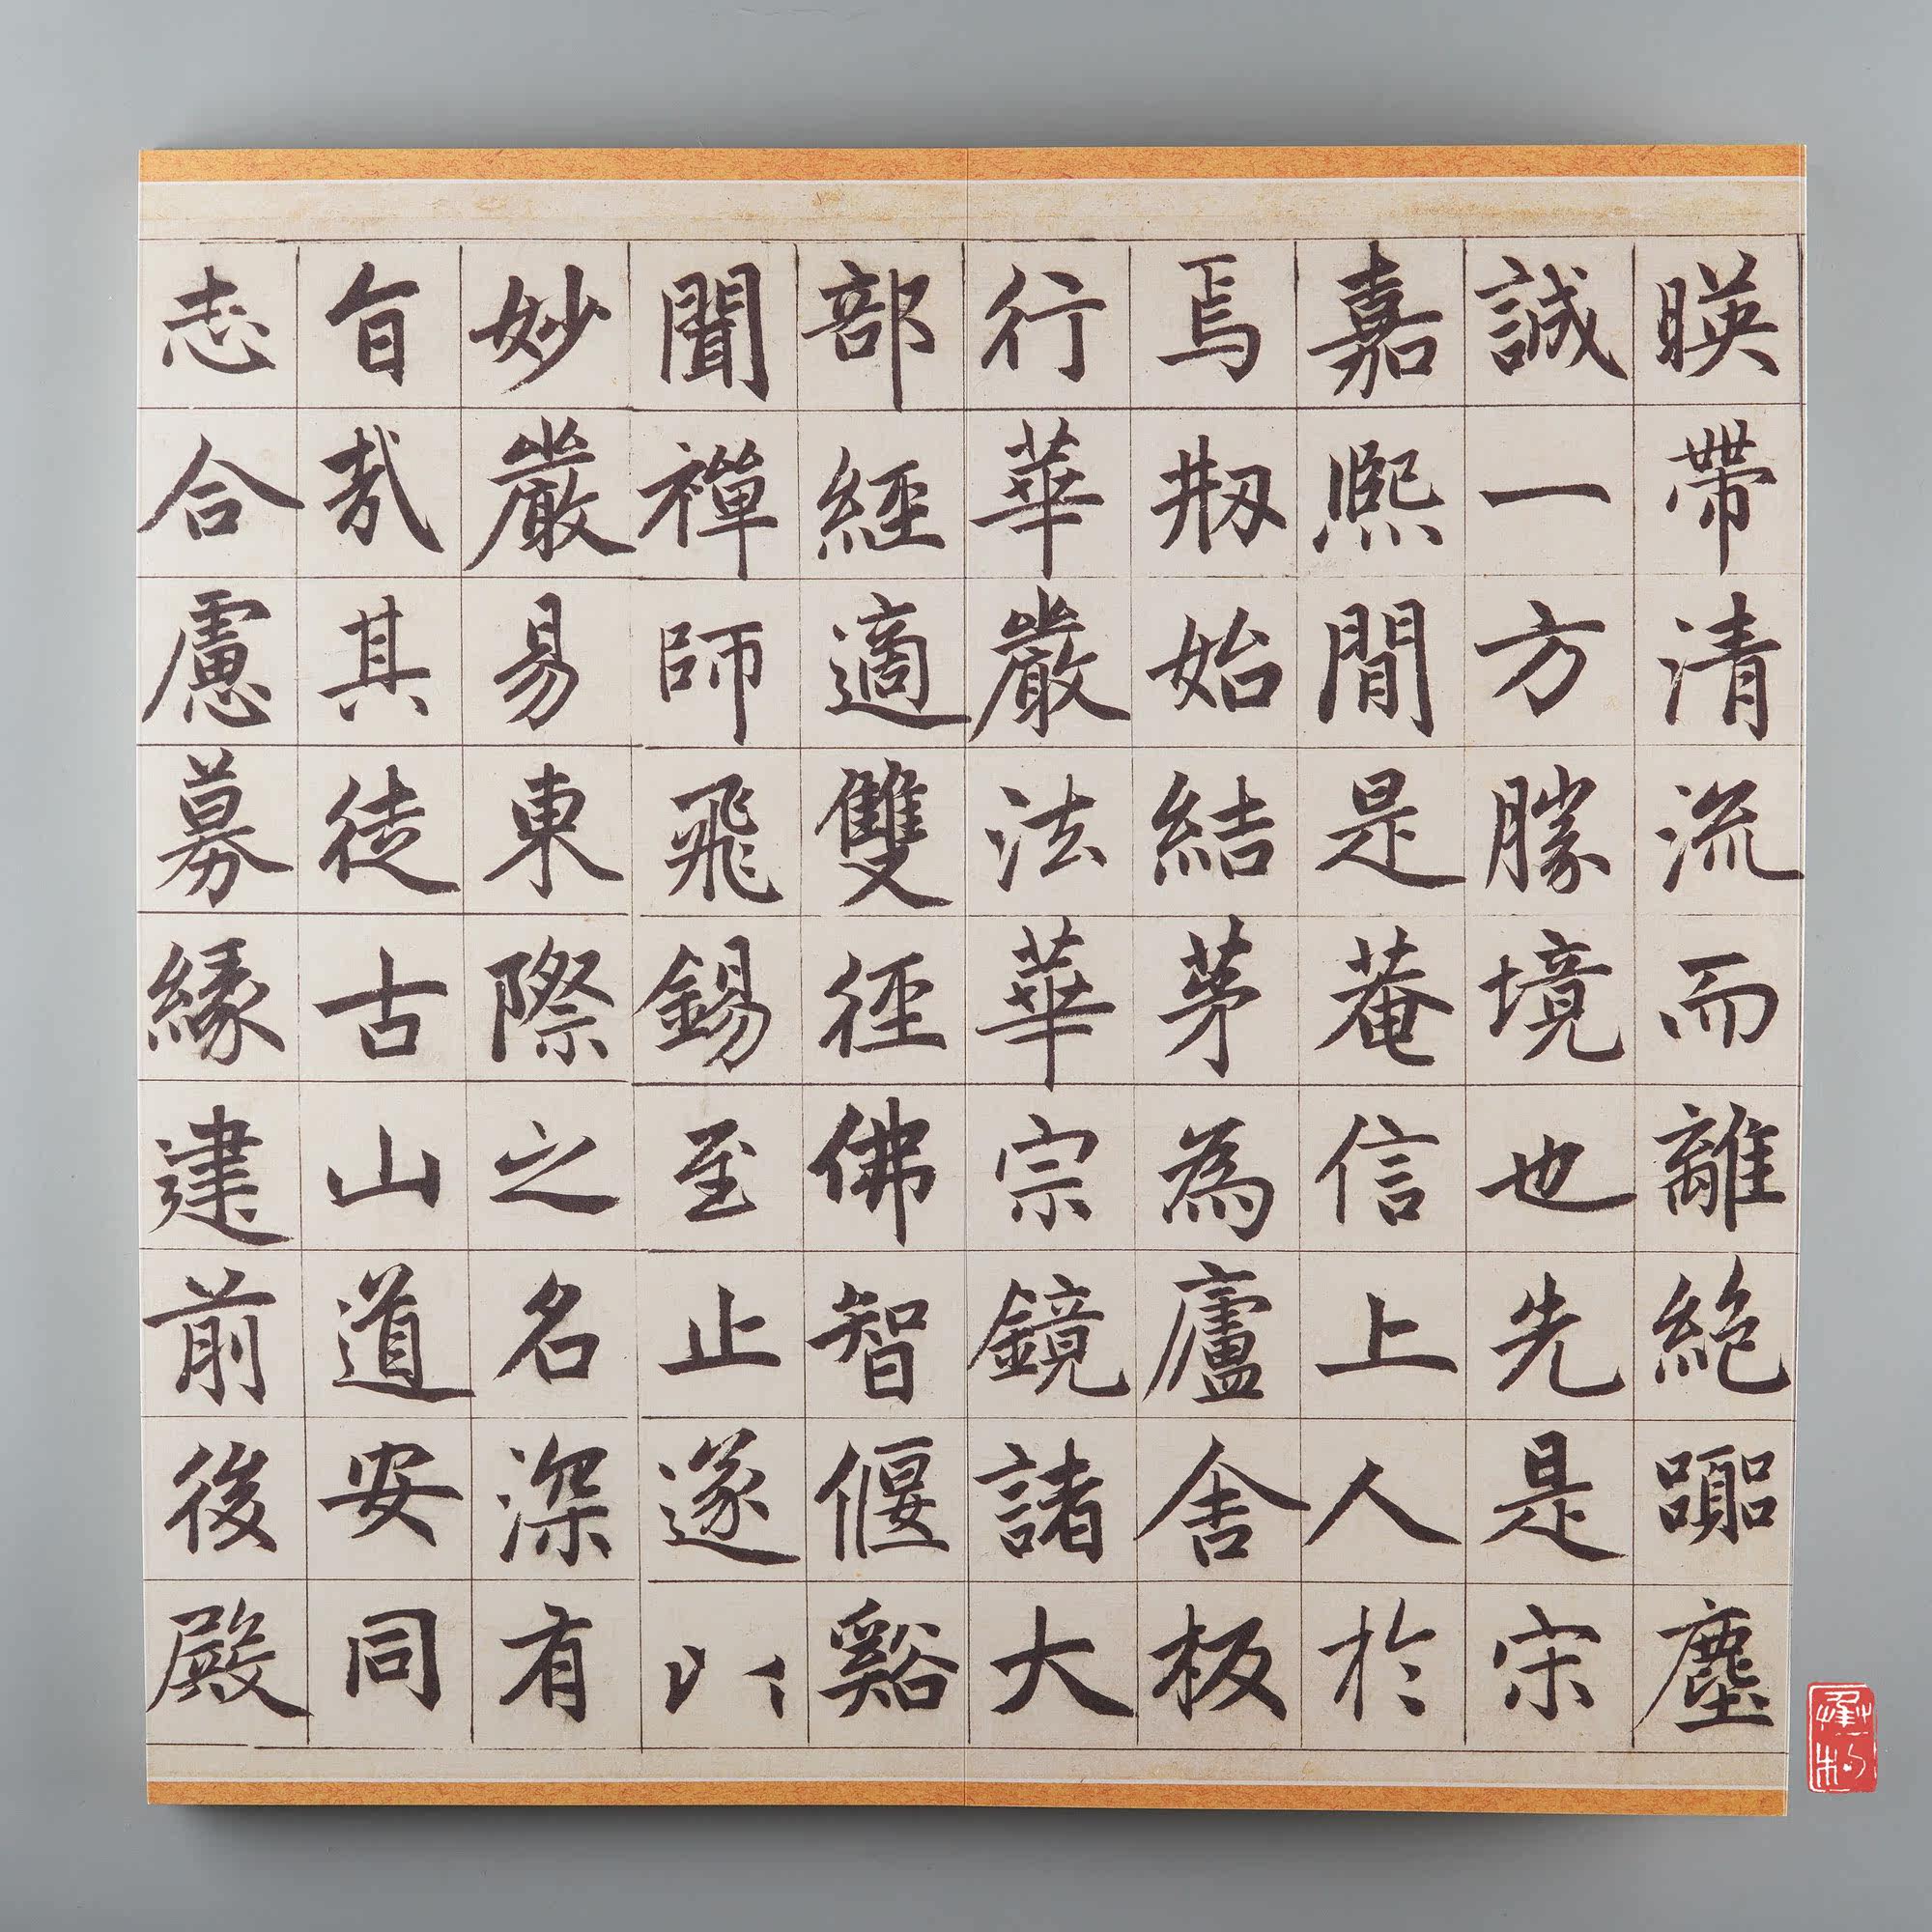 暎帶清流而離絶嚻塵
誠一方勝境也先是宋
嘉熙間是菴信上人於
焉㓝始結茅為廬舍板
行華嚴法華宗鏡諸大
部經適雙徑佛智偃谿
聞禪師飛錫至止遂以
妙嚴易東際之名深有
旨哉其徒古山道安同
志合慮募緣建前後殿